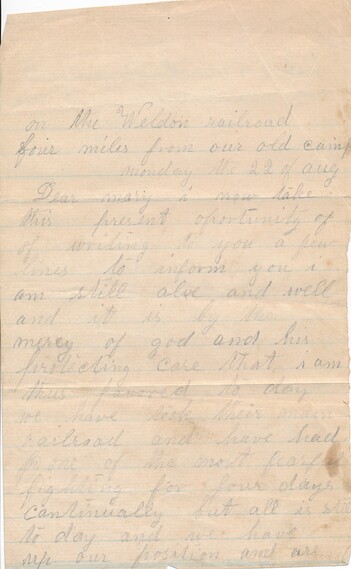 on the Weldon railroad
four miles from our old camp
monday the 22 of aug
Dear mary i now take
this present oportunity of
of writing to you a few
lines to inform you i
am still alive and well
and it is by the
mercy of god and his
protecting care that i am
thus favored to day
we have took their main
railroad and have had
some of the most fearful
fighting for four days
continually but all is still
to day and we have
up our position and are